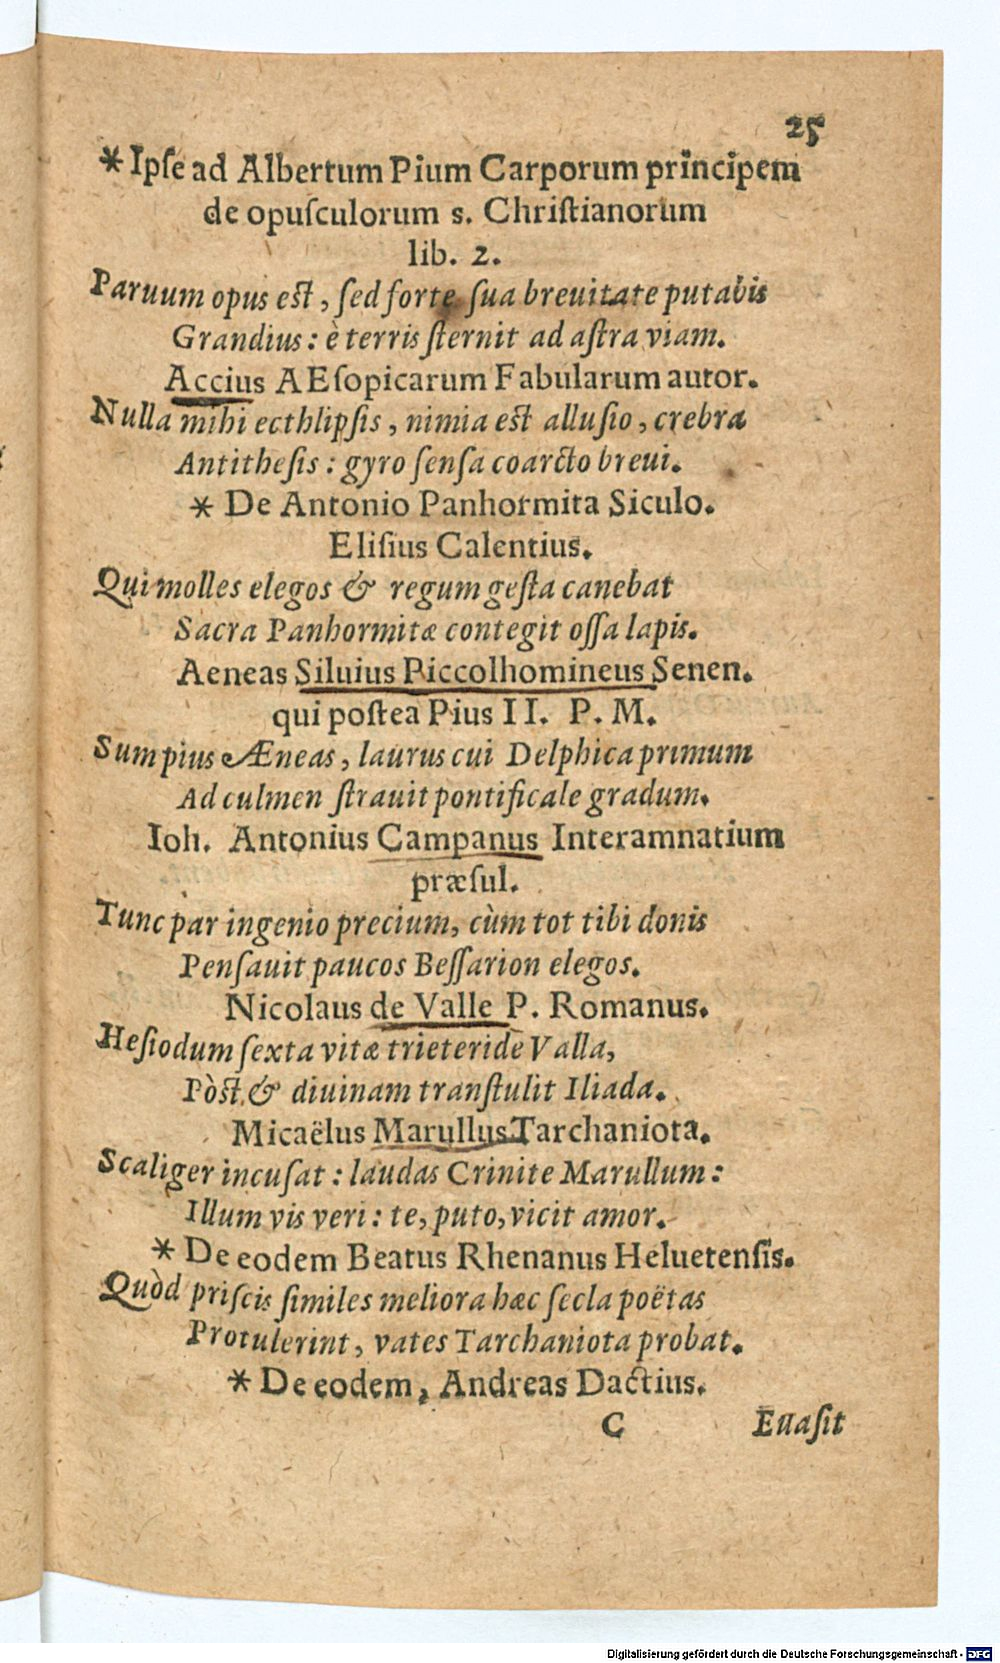 25
*Ipſe ad Albertum Pium Carporum principem
de opuſculorum s. Chriſtianorum
lib. 2.
Paruum opus eſt, ſed forte ſua breuitate putabis
Grandius: è terris ſternit ad aſtra viam.
Accius AEſopicarum Fabularum autor.
Nulla mihi ecthlipſis, nimia eſt alluſio, crebra
Antitheſis: gyro ſenſa coarcto breui.
* De Antonio Panhormita Siculo.
Eliſius Calentius.
Qui molles elegos & regum geſta canebat
Sacra Panhormitæ contegit oſſa lapis.
Aeneas Siluius Piccolhomineus Senen.
qui poſtea Pius II. P. M.
Sum pius Æneas, laurus cui Delphica primum
Ad culmen ſtrauit pontificale gradum.
Ioh. Antonius Campanus Interamnatium
præſul.
Tunc par ingenio precium, cùm tot tibi donis
Penſauit paucos Beſſarion elegos.
Nicolaus de Valle P. Romanus.
Heſiodum ſexta vitæ trieteride Valla,
Pòſt & diuinam tranſtulit Iliada.
Micaëlus Marullus Tarchaniota.
Scaliger incuſat: laudas Crinite Marullum:
Illum vis veri: te, puto, vicit amor.
* De eodem Beatus Rhenanus Heluetenſis.
Quòd priſcis ſimiles meliora hæc ſecla poëtas
Protulerint, vates Tarchaniota probat.
* De eodem, Andreas Dactius.
C Euaſit
Digitalisierung gefördert durch die Deutsche Forschungsgemeinschaft - DFG